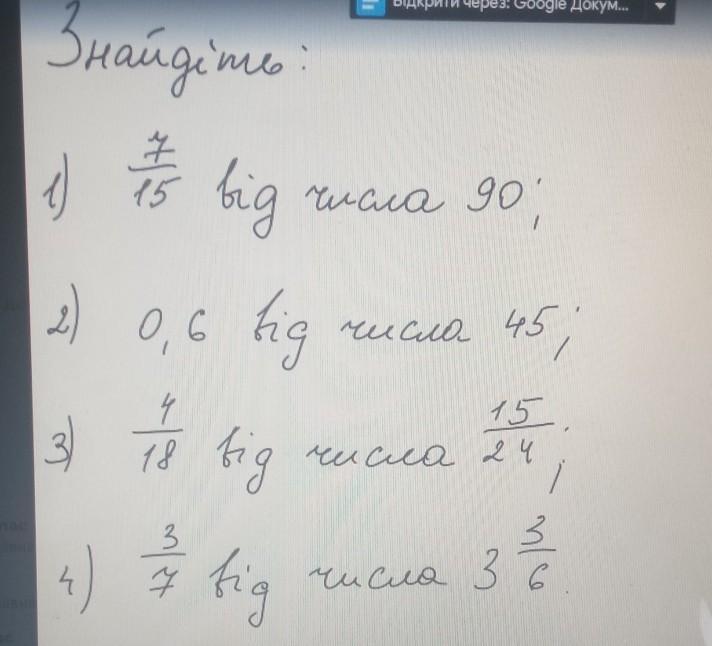 Відкрити через: Google Докум...
Знайдіть:
1) 7/15 від числа 90;
2) 0,6 від числа 45;
3) 4/18 від числа 15/24;
4) 3/7 від числа 3 3/6.